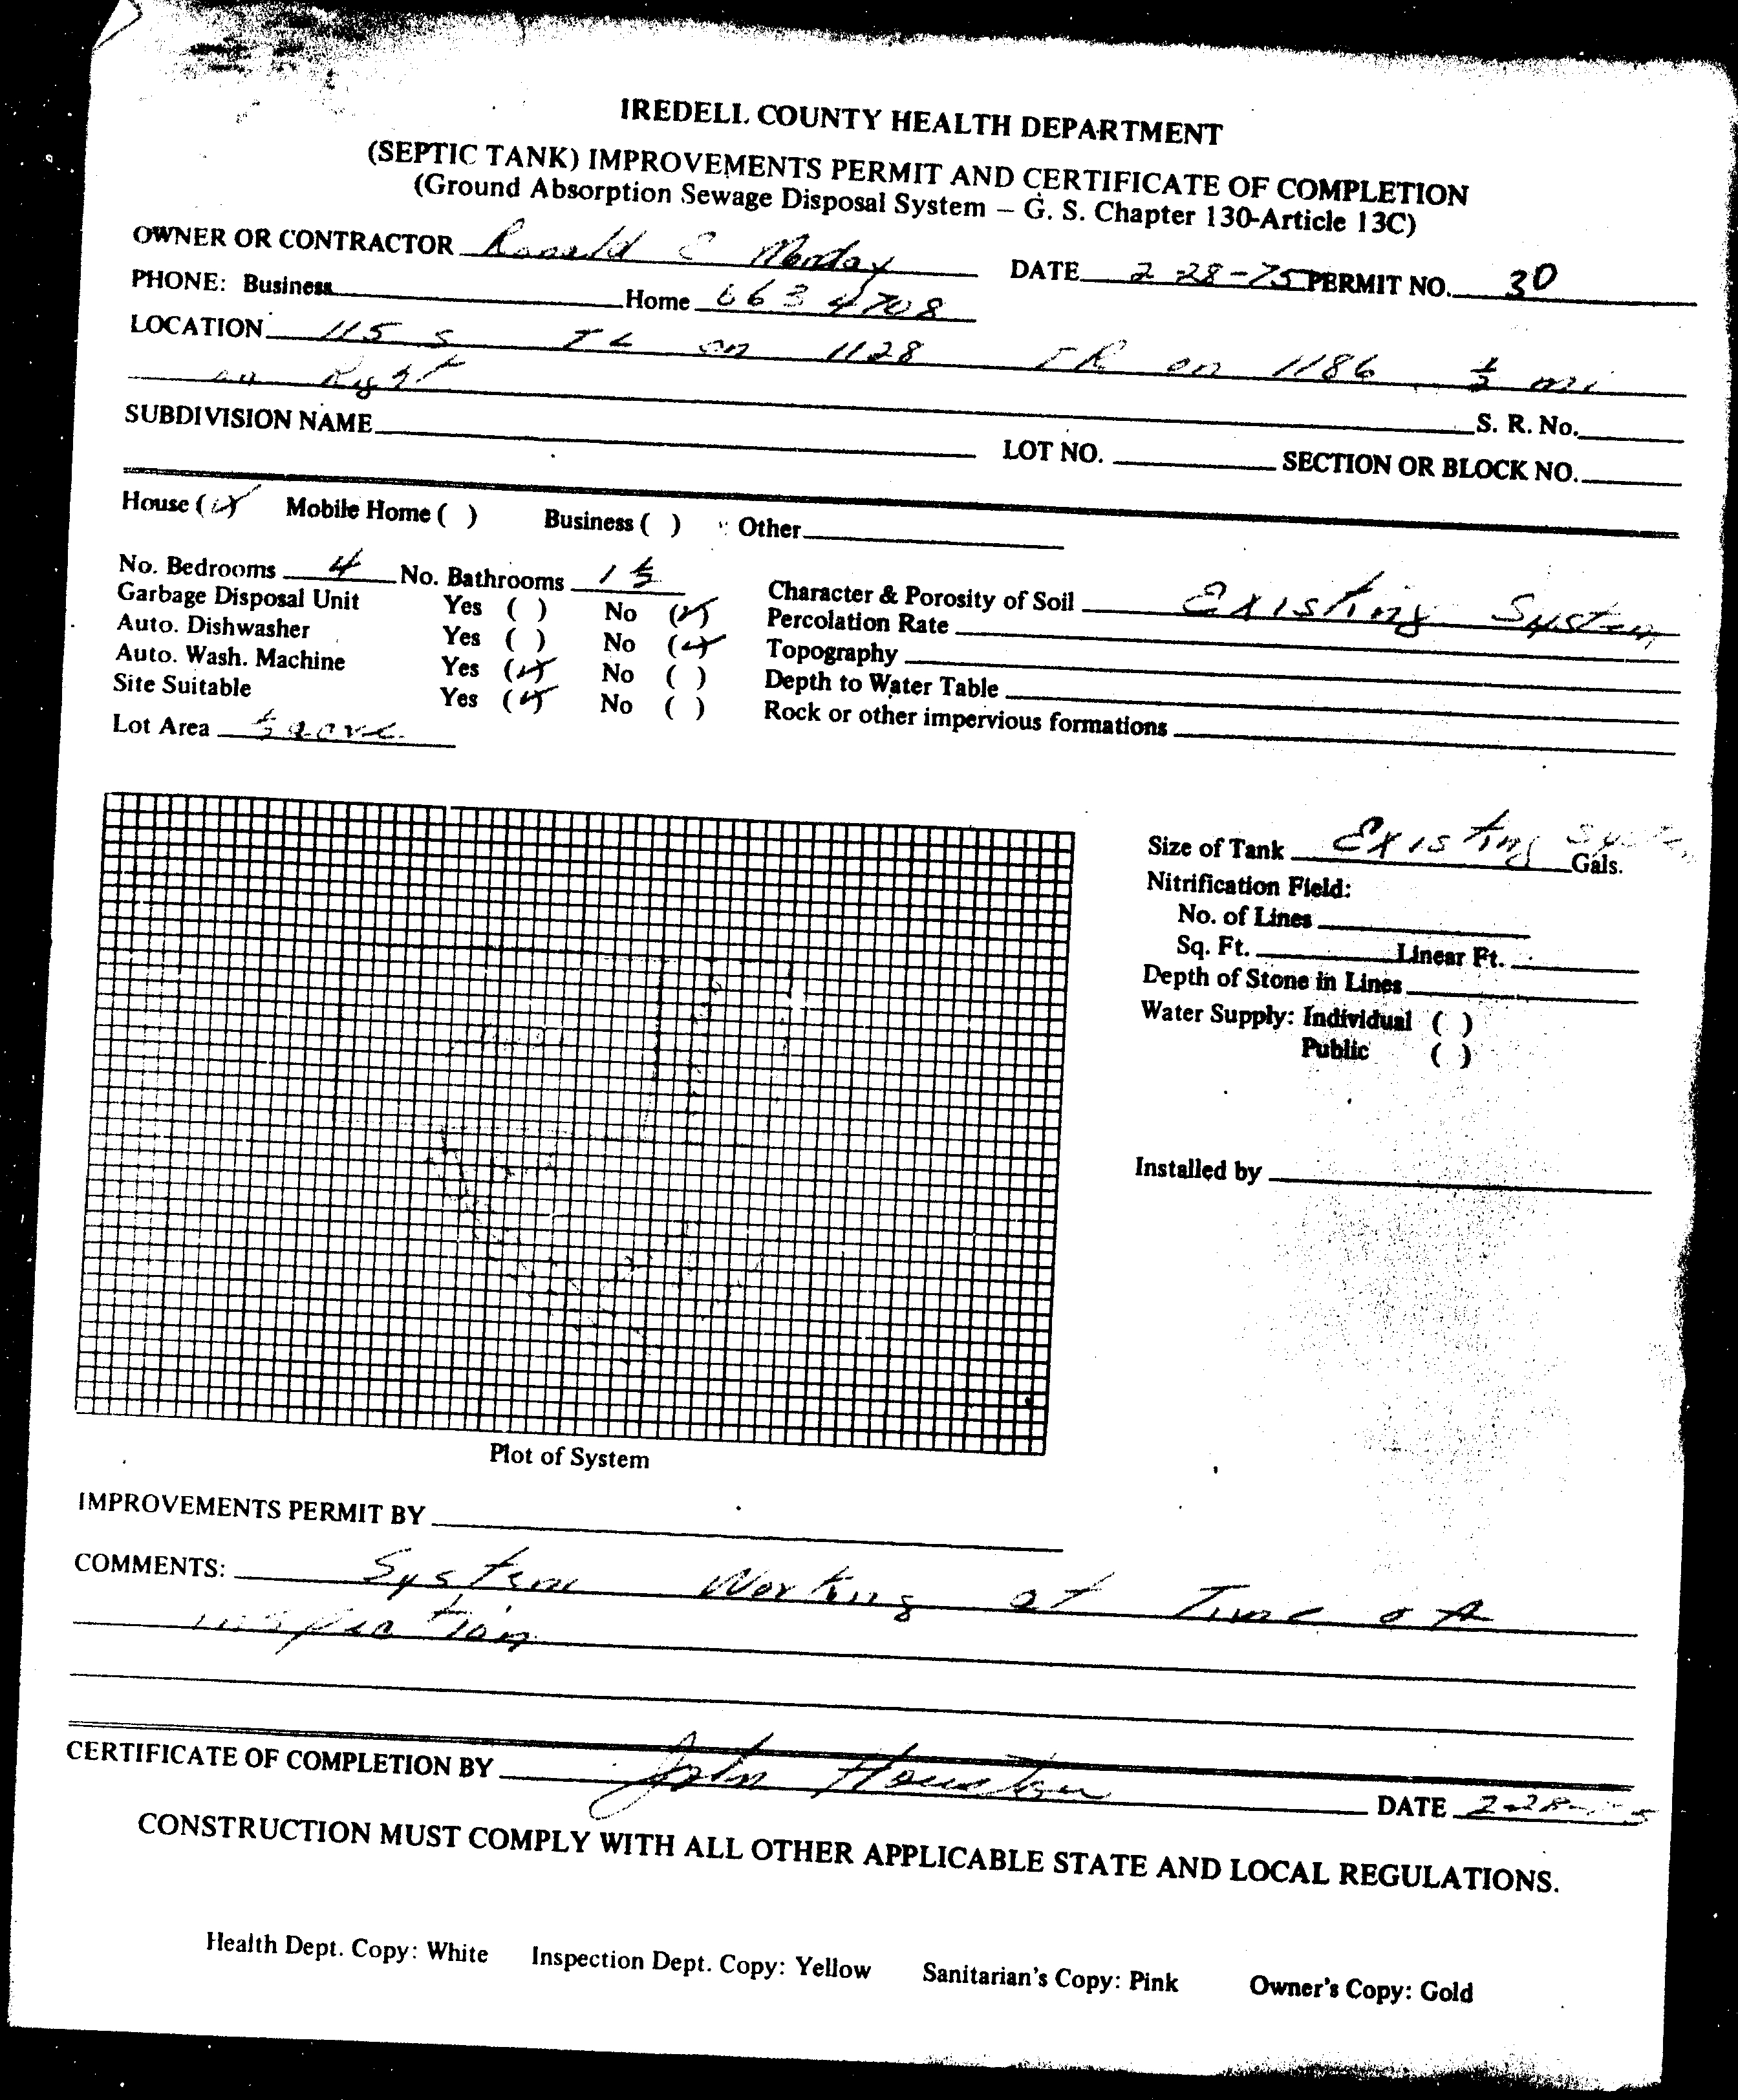 IREDELL COUNTY HEALTH DEPARTMENT
(SEPTIC TANK) IMPROVEMENTS PERMIT AND CERTIFICATE OF COMPLETION
(Ground Absorption Sewage Disposal System – G. S. Chapter 130-Article 13C)
OWNER OR CONTRACTOR Ronald C DATE 2-28-75 PERMIT NO. 30
PHONE: Business Home 663 4708
LOCATION 115 S TL on 1128 TR on 1186 ½ mi
on Right
S. R. No.
SUBDIVISION NAME LOT NO. SECTION OR BLOCK NO.
House (x) Mobile Home ( ) Business ( ) Other
No. Bedrooms 4 No. Bathrooms 1 ½
Garbage Disposal Unit Yes ( ) No (x) Character & Porosity of Soil Existing System
Auto. Dishwasher Yes ( ) No (x) Percolation Rate
Auto. Wash. Machine Yes (x) No ( ) Topography
Site Suitable Yes (x) No ( ) Depth to Water Table
Lot Area ½ acre Rock or other impervious formations
Size of Tank Existing System Gals.
Nitrification Field:
No. of Lines
Sq. Ft. Linear Ft.
Depth of Stone in Lines
Water Supply: Individual ( )
Public ( )
Installed by
Plot of System
IMPROVEMENTS PERMIT BY
COMMENTS: System Working at Time of
inspection
CERTIFICATE OF COMPLETION BY John Houston
DATE 2-28-75
CONSTRUCTION MUST COMPLY WITH ALL OTHER APPLICABLE STATE AND LOCAL REGULATIONS.
Health Dept. Copy: White Inspection Dept. Copy: Yellow Sanitarian's Copy: Pink Owner's Copy: Gold